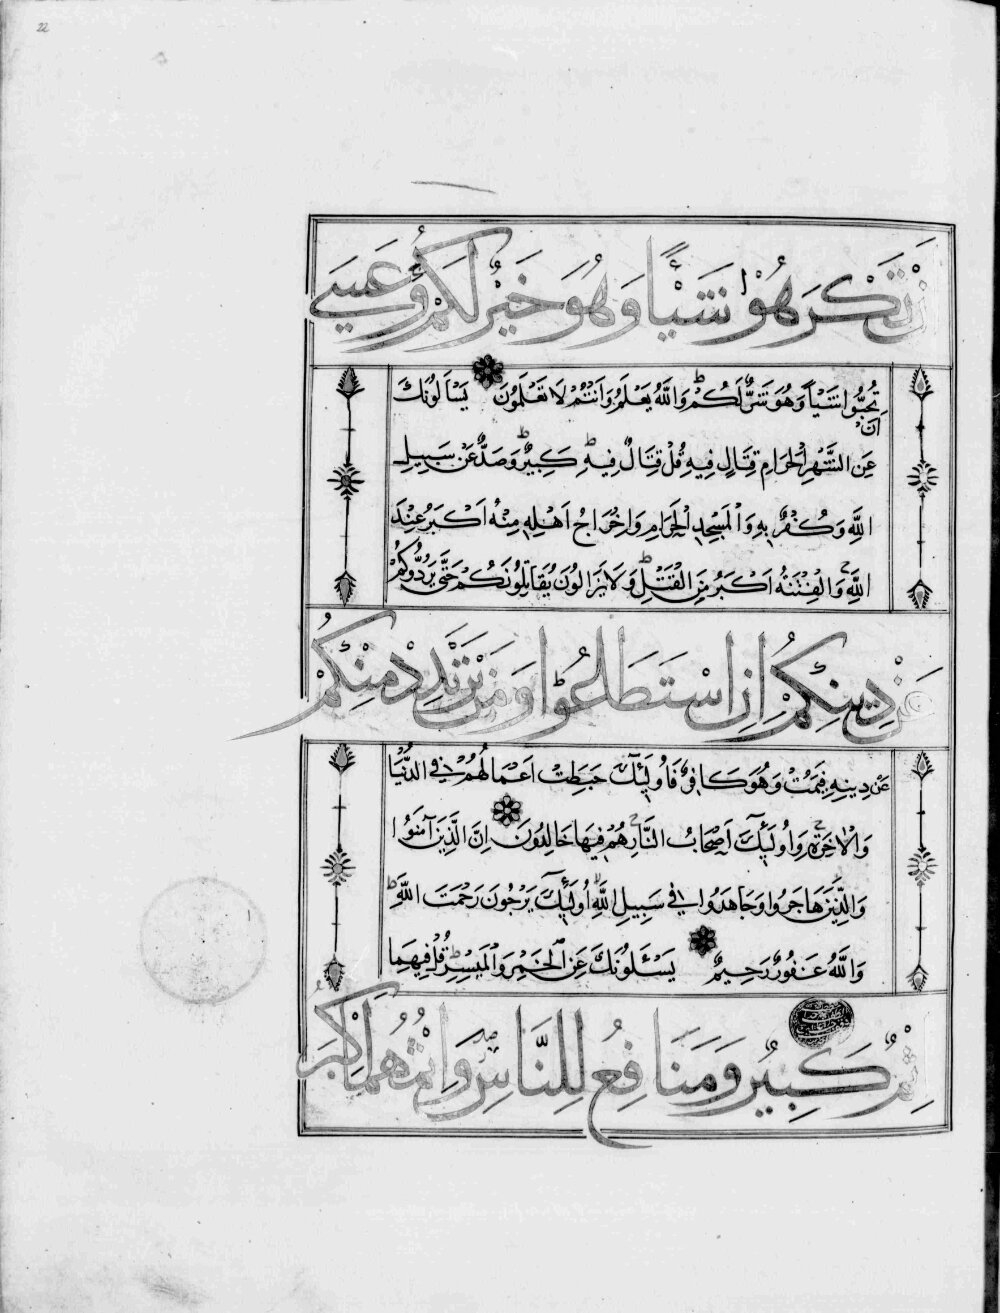 22
ان تَكْرَهُوْا شَيْئًا وَهُوَ خَيْرٌ لَكُمْ وَعَسَى
اَنْ تُحِبُّوا شَيْئًا وَهُوَ شَرٌّ لَكُمْ ط وَاللَّهُ يَعْلَمُ وَاَنْتُمْ لَا تَعْلَمُونَ يَسْاَلُونَكَ
عَنِ الشَّهْرِ الْحَرَامِ قِتَالٍ فِيهِ قُلْ قِتَالٌ فِيهِ ط كَبِيرٌ ط وَصَدٌّ عَنْ سَبِيلِ
اللَّهِ وَكُفْرٌ بِهِ وَالْمَسْجِدِ الْحَرَامِ وَاِخْرَاجُ اَهْلِهِ مِنْهُ اَكْبَرُ عِنْدَ
اللَّهِ وَالْفِتْنَةُ اَكْبَرُ مِنَ الْقَتْلِ ط وَلَا يَزَالُونَ يُقَاتِلُونَكُمْ حَتَّى يَرُدُّوكُمْ
عَنْ دِينِكُمْ اِنِ اسْتَطَاعُوْا وَمَنْ يَرْتَدِدْ مِنْكُمْ
عَنْ دِينِهِ فَيَمُتْ وَهُوَ كَافِرٌ فَاُولَئِكَ حَبِطَتْ اَعْمَالُهُمْ فِي الدُّنْيَا
وَالْاٰخِرَةِ ج وَاُولَئِكَ اَصْحَابُ النَّارِ ج هُمْ فِيهَا خَالِدُونَ اِنَّ الَّذِينَ آمَنُوا
وَالَّذِينَ هَاجَرُوا وَجَاهَدُوا فِي سَبِيلِ اللَّهِ لا اُولَئِكَ يَرْجُونَ رَحْمَتَ اللَّهِ ط
وَاللَّهُ غَفُورٌ رَحِيمٌ يَسْئَلُونَكَ عَنِ الْخَمْرِ وَالْمَيْسِرِ ط قُلْ فِيهِمَا
اِثْمٌ كَبِيرٌ وَمَنَافِعُ لِلنَّاسِ وَاِثْمُهُمَا اَكْبَرُ